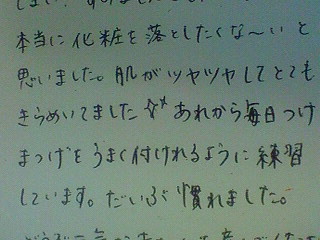 本当に化粧を落としたくな〜いと
思いました。肌がツヤツヤしてとても
きらめいてました☆〃あれから毎日つけ
まつげをうまく付けれるように練習
しています。だいぶ慣れました。